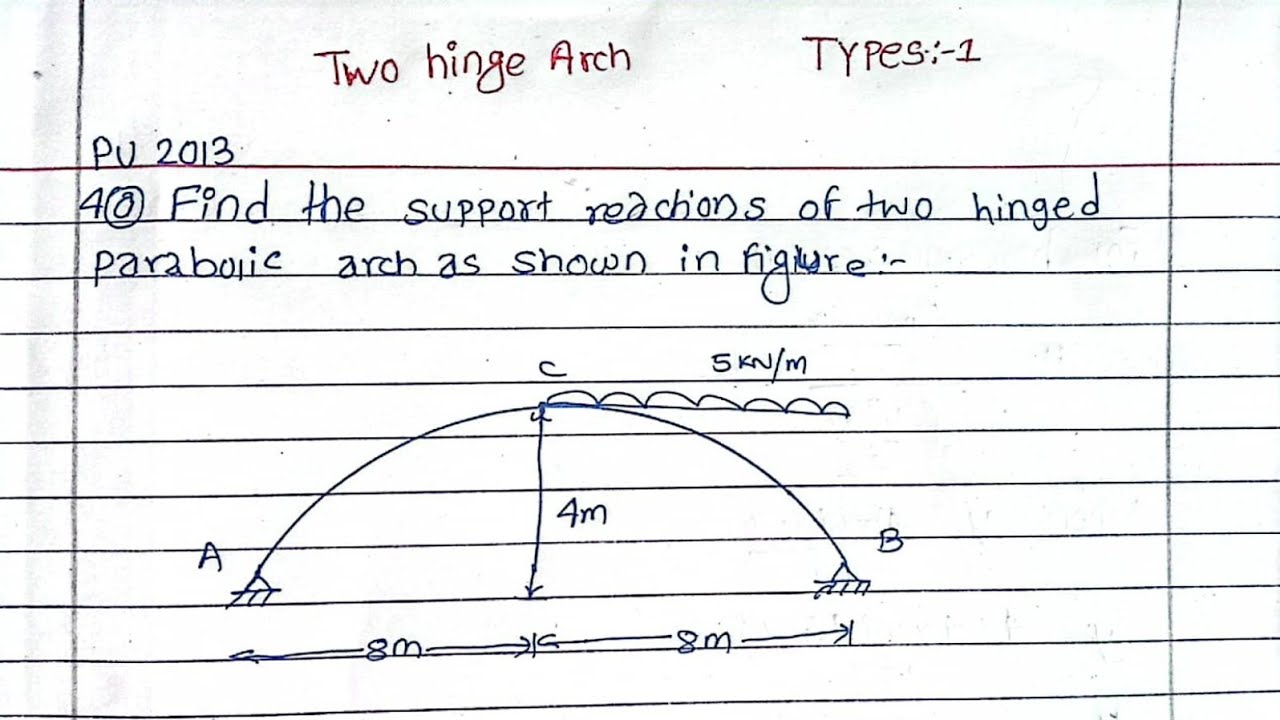 Two hinge Arch
TYPes:-1
PU 2013
4(a) Find the support reactions of two hinged
parabolic arch as shown in figure:-
C
5 KN/m
4m
A
B
8m
8m